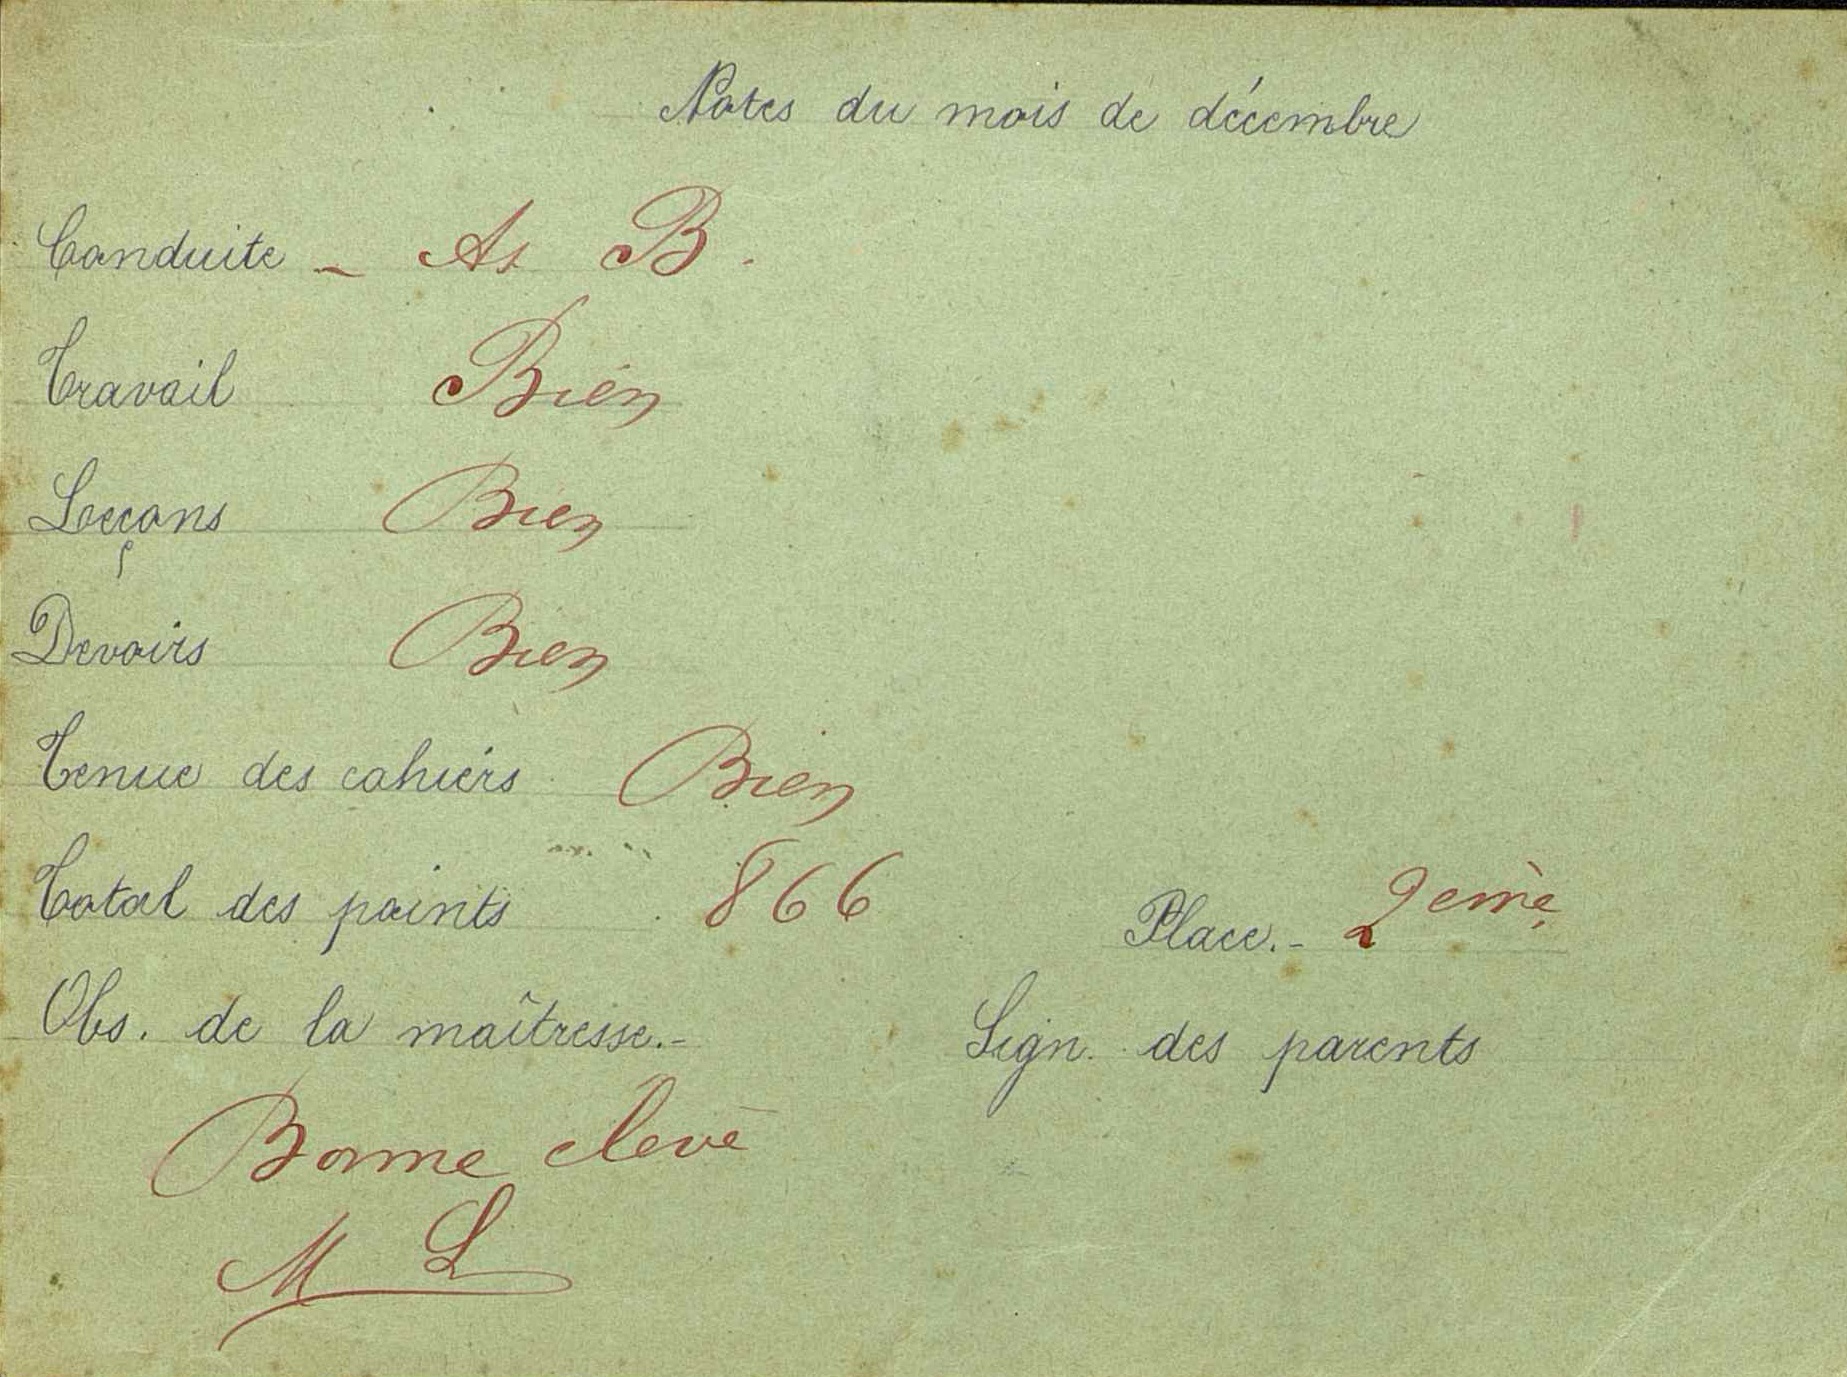 Notes du mois de décembre
Conduite - As B.
Travail Bien
Leçons Bien
Devoirs Bien
Tenue des cahiers Bien
Total des points 866
Place.- 2ème
Obs. de la maîtresse.-
Sign. des parents
Bonne élève
M L